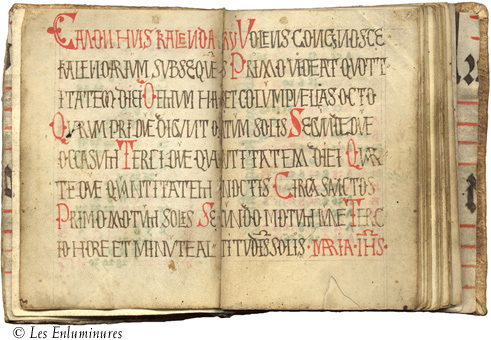 CANON HUIS KALENDARY VOLENS CONGNOSCE
KALENDRIUM SUBSEQUES PRIMO VIDEAT QUOTT
ITATEM DIEI ET COLUMPNELIAS OCTO
QUARUM PRI DUE DICUNT OTUM SOLIS SEGUNDE DUE
OCCASUM TERCI DUE QUANTITATEM DIEI QUAR
TE DUE QUANTITATEM NOCTIS CIRCA SANCTOS
PRIMO MOTUM SOLIS SECUNDO MOTUM LUNE TERC
IO HORE ET MINUTE ALTITUDIS SOLIS · MARIA · IHS ·
© Les Enluminures